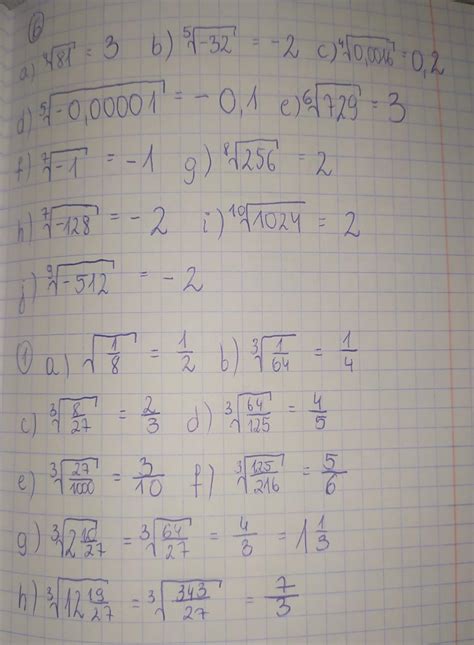 ⑥
a) ∜81 = 3 b) ⁵√-32 = -2 c) ∜0,0016 = 0,2
d) ⁵√-0,00001 = -0,1 e) ⁶√729 = 3
f) ⁷√-1 = -1 g) ⁸√256 = 2
h) ⁷√-128 = -2 i) ¹⁰√1024 = 2
j) ⁹√-512 = -2
① a) √1/8 = 1/2 b) ³√1/64 = 1/4
c) ³√8/27 = 2/3 d) ³√64/125 = 4/5
e) ³√27/1000 = 3/10 f) ³√125/216 = 5/6
g) ³√2 10/27 = ³√64/27 = 4/3 = 1 1/3
h) ³√12 19/27 = ³√343/27 = 7/3